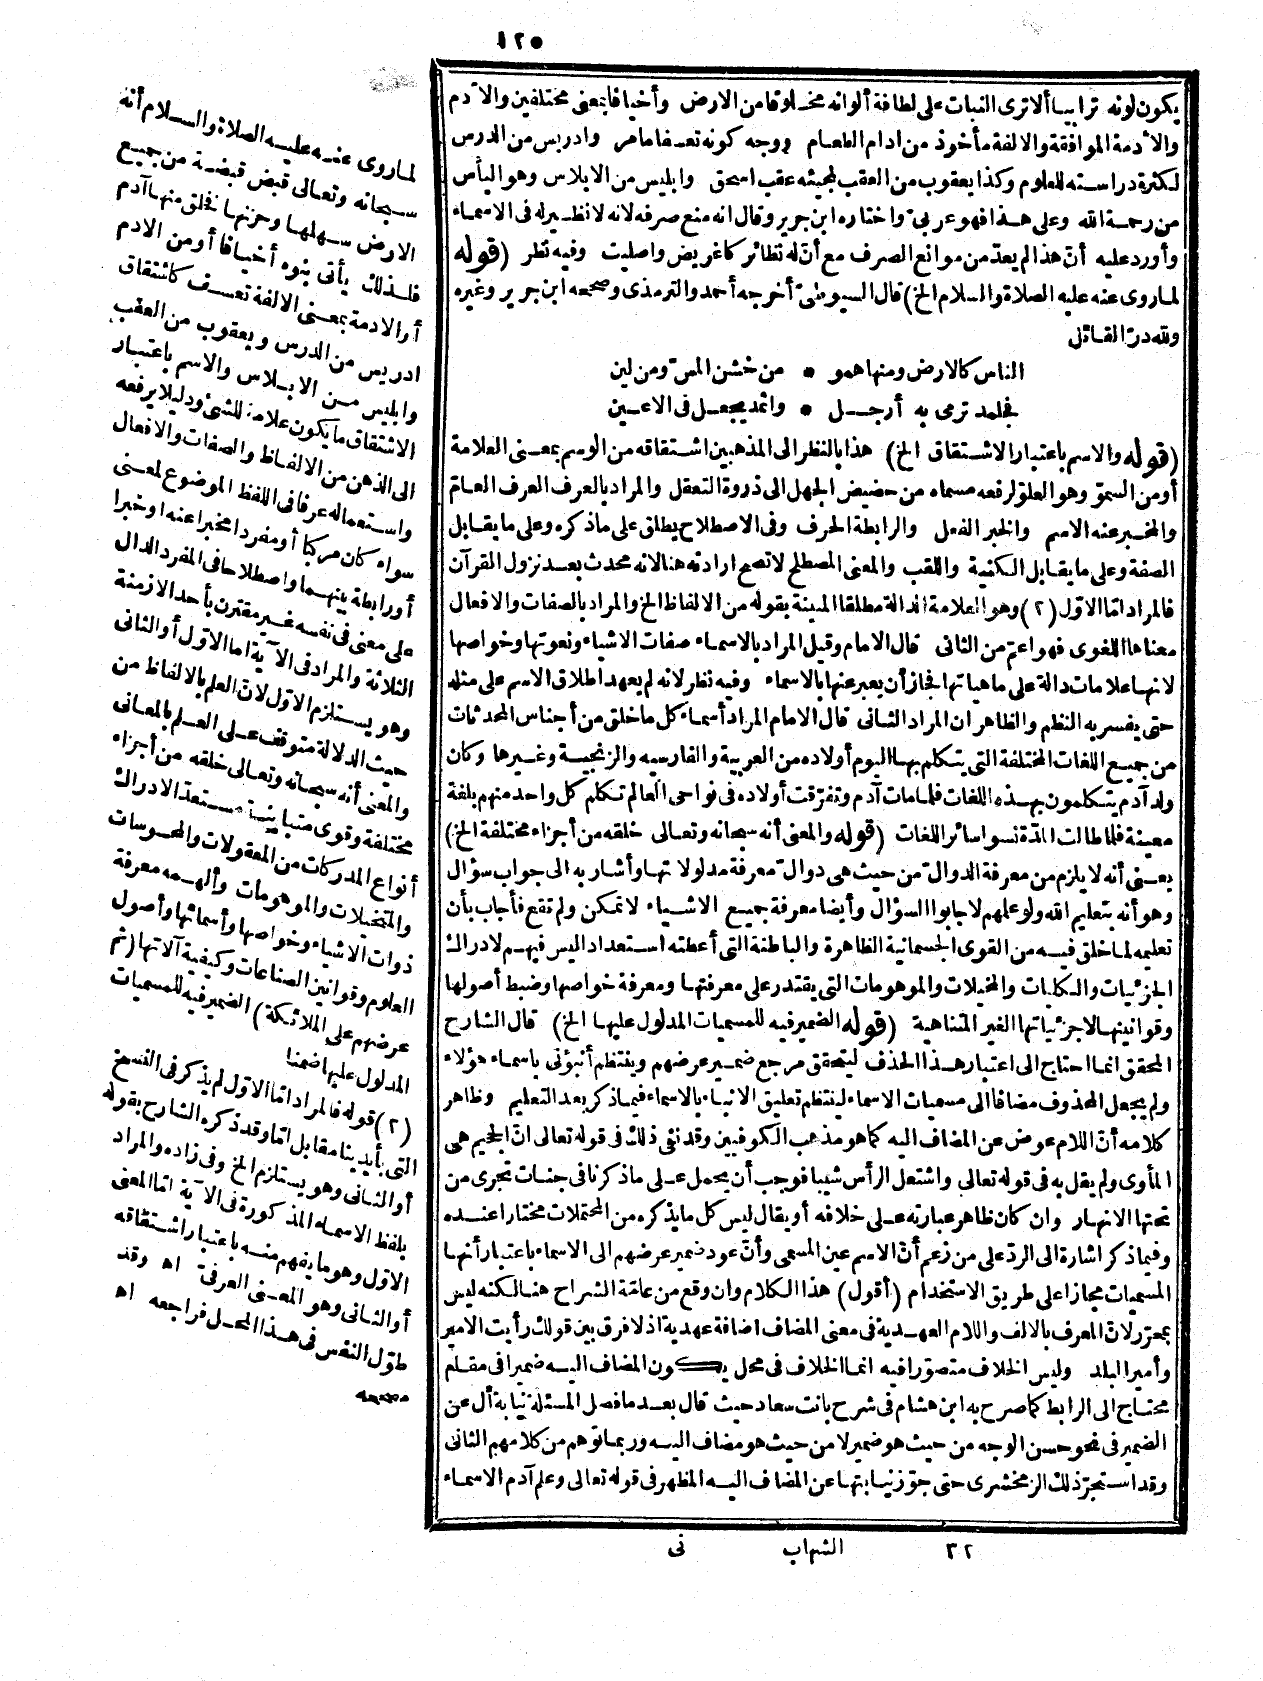 ١٢٥
يكون لونه ترابيا ألا ترى النبات على لطافة ألوانه مخلوقا من الارض وأخيافا بمعنى مختلفين والأدم
والأدمة الموافقة والالفة مأخوذ من ادام الطعام ووجه كونه تعسفا مامر وادريس من الدرس
لكثرة دراسته للعلوم وكذا يعقوب من العقب لمجيئه عقب اسحق وابليس من الابلاس وهو اليأس
من رحمة الله وعلى هذا فهو عربىّ واختاره ابن جرير وقال انه منع صرفه لانه لا نظير له فى الاسماء
وأورد عليه أنّ هذا لم يعدّ من موانع الصرف مع أنّ له نظائر كاغريض واصليت وفيه نظر (قوله
لماروى عنه عليه الصلاة والسلام الخ) قال السيوطىّ أخرجه أحمد والترمذى وصححه ابن جرير وغيره
ولله درّ القائل
الناس كالارض ومنها همو • من خشن المسّ ومن لين
فجلمد ترمى به أرجل • واثمد يجعل فى الاعين
(قوله والاسم باعتبار الاشتقاق الخ) هذا بالنظر الى المذهبين اشتقاقه من الوسم بمعنى العلامة
أومن السموّ وهو العلوّ لرفعه مسماه من حضيض الجهل الى ذروة التعقل والمراد بالعرف العرف العامّ
والمخبر عنه الاسم والخبر الفعل والرابطة الحرف وفى الاصطلاح يطلق على ماذكره وعلى ما يقابل
الصفة وعلى ما يقابل الكنية واللقب والمعنى المصطلح لا تصح ارادته هنا لانه محدث بعد نزول القرآن
فالمراد امّا الاوّل (٢) وهو العلامة الدالة مطلقا المبينة بقوله من الالفاظ الخ والمراد بالصفات والافعال
معناها اللغوى فهو اعمّ من الثانى قال الامام وقيل المراد بالاسماء صفات الاشياء ونعوتها وخواصها
لانها علامات دالة على ماهياتها فجاز أن يعبر عنها بالاسماء وفيه نظر لانه لم يعهد اطلاق الاسم على مثله
حتى يفسر به النظم والظاهر ان المراد الثانى قال الامام المراد أسماء كل ما خلق من أجناس المحدثات
من جميع اللغات المختلفة التى يتكلم بها اليوم أولاده من العربية والفارسيه والزنجية وغيرها وكان
ولد آدم يتكلمون بهذه اللغات فلما مات آدم وتفرّقت أولاده فى نواحى العالم تكلم كل واحد منهم بلغة
معينة فلما طالت المدّة نسوا سائر اللغات (قوله والمعنى أنه سبحانه وتعالى خلقه من أجزاء مختلفة الخ)
يعنى أنه لا يلزم من معرفة الدوالّ من حيث هى دوالّ معرفة مدلولاتها وأشار به الى جواب سؤال
وهو أنه بتعليم الله ولو علمهم لاجابوا السؤال وأيضا معرفة جميع الاشياء لا تمكن ولم تقع فأجاب بأن
تعليمه لما خلق فيه من القوى الجسمانية الظاهرة والباطنة التى أعطته استعداد اليس فيهم لادراك
الجزئيات والكليات والمخيلات والموهومات التى يقتدر على معرفتها ومعرفة خواصها وضبط أصولها
وقوانينها لاجزئياتها الغير المتناهية (قوله الضمير فيه للمسميات المدلول عليها الخ) قال الشارح
المحقق انما احتاج الى اعتبار هذا الحذف ليتحقق مرجع ضمير عرضهم وينتظم أنبؤنى باسماء هؤلاء
ولم يجعل المحذوف مضافا الى مسميات الاسماء لينتظم تعليق الانباء بالاسماء فيما ذكر بعد التعليم وظاهر
كلامه أنّ اللام عوض عن المضاف اليه كما هو مذهب الكوفيين وقد نفى ذلك فى قوله تعالى انّ الجحيم هى
المأوى ولم يقل به فى قوله تعالى واشتعل الرأس شيبا فوجب أن يحمل على ما ذكرنا فى جنات تجرى من
تحتها الانهار وان كان ظاهر عبارته على خلافه أو يقال ليس كل ما يذكره من المحتملات مختارا عنده
وفيما ذكر اشارة الى الردّ على من زعم أنّ الاسم عين المسمى وأنّ عود ضمير عرضهم الى الاسماء باعتبار أنها
المسميات مجازا على طريق الاستخدام (أقول) هذا الكلام وان وقع من عامّة الشراح هنا لكنه ليس
بمحرّر لانّ المعرف بالالف واللام العهدية فى معنى المضاف اضافة عهدية اذ لا فرق بين قولك رأيت الامير
وأمير البلد وليس الخلاف متصوّرا فيه انما الخلاف فى محل يكون المضاف اليه ضميرا فى مقام
محتاج الى الرابط كما صرح به ابن هشام فى شرح بانت سعاد حيث قال بعد ما فصل المسئلة نيابة أل عن
الضمير فى نحو حسن الوجه من حيث هو ضمير لا من حيث هو مضاف اليه وربما توهم من كلامهم الثانى
وقد استجرّ ذلك الزمخشرى حتى جوّز نيابتها عن المضاف اليه المظهر فى قوله تعالى وعلم آدم الاسماء
٣٢ الشهاب فى
لماروى عنه عليه الصلاة والسلام أنه
سبحانه وتعالى قبض قبضة من جميع
الارض سهلها وحزنها فخلق منها آدم
فلذلك يأتى بنوه أخيافا أومن الادم
أو الادمة بمعنى الالفة تعسف كاشتقاق
ادريس من الدرس ويعقوب من العقب
وابليس من الابلاس والاسم باعتبار
الاشتقاق ما يكون علامة للشئ ودليلا يرفعه
الى الذهن من الالفاظ والصفات والافعال
واستعماله عرفا فى اللفظ الموضوع لمعنى
سواء كان مركبا أو مفردا مخبرا عنه او خبرا
أورابطة بينهما واصطلاحا فى المفرد الدال
على معنى فى نفسه غير مقترن بأحد الازمنة
الثلاثة والمراد فى الآية اما الاول أوالثانى
وهو يستلزم الاول لانّ العلم بالالفاظ من
حيث الدلالة متوقف على العلم بالمعانى
والمعنى أنه سبحانه وتعالى خلقه من أجزاء
مختلفة وقوى متباينة مستعدّا لادراك
أنواع المدركات من المعقولات والمحسوسات
والمتخيلات والموهومات وألهمه معرفة
ذوات الاشياء وخواصها وأسمائها وأصول
العلوم وقوانين الصناعات وكيفية آلاتها (ثم
عرضهم على الملائكة) الضمير فيه للمسميات
المدلول عليها ضمنا
(٢) قوله فالمراد امّا الاوّل لم يذكر فى النسخ
التى بأيدينا مقابل امّا وقد ذكره الشارح بقوله
أو الثانى وهو يستلزم الخ وفى زاده والمراد
بلفظ الاسماء المذكورة فى الآية امّا المعنى
الاوّل وهو ما يفهم منه باعتبار اشتقاقه
أو الثانى وهو المعنى العرفىّ اه وقد
طوّل النفس فى هذا المحل فراجعه اه
مصححه